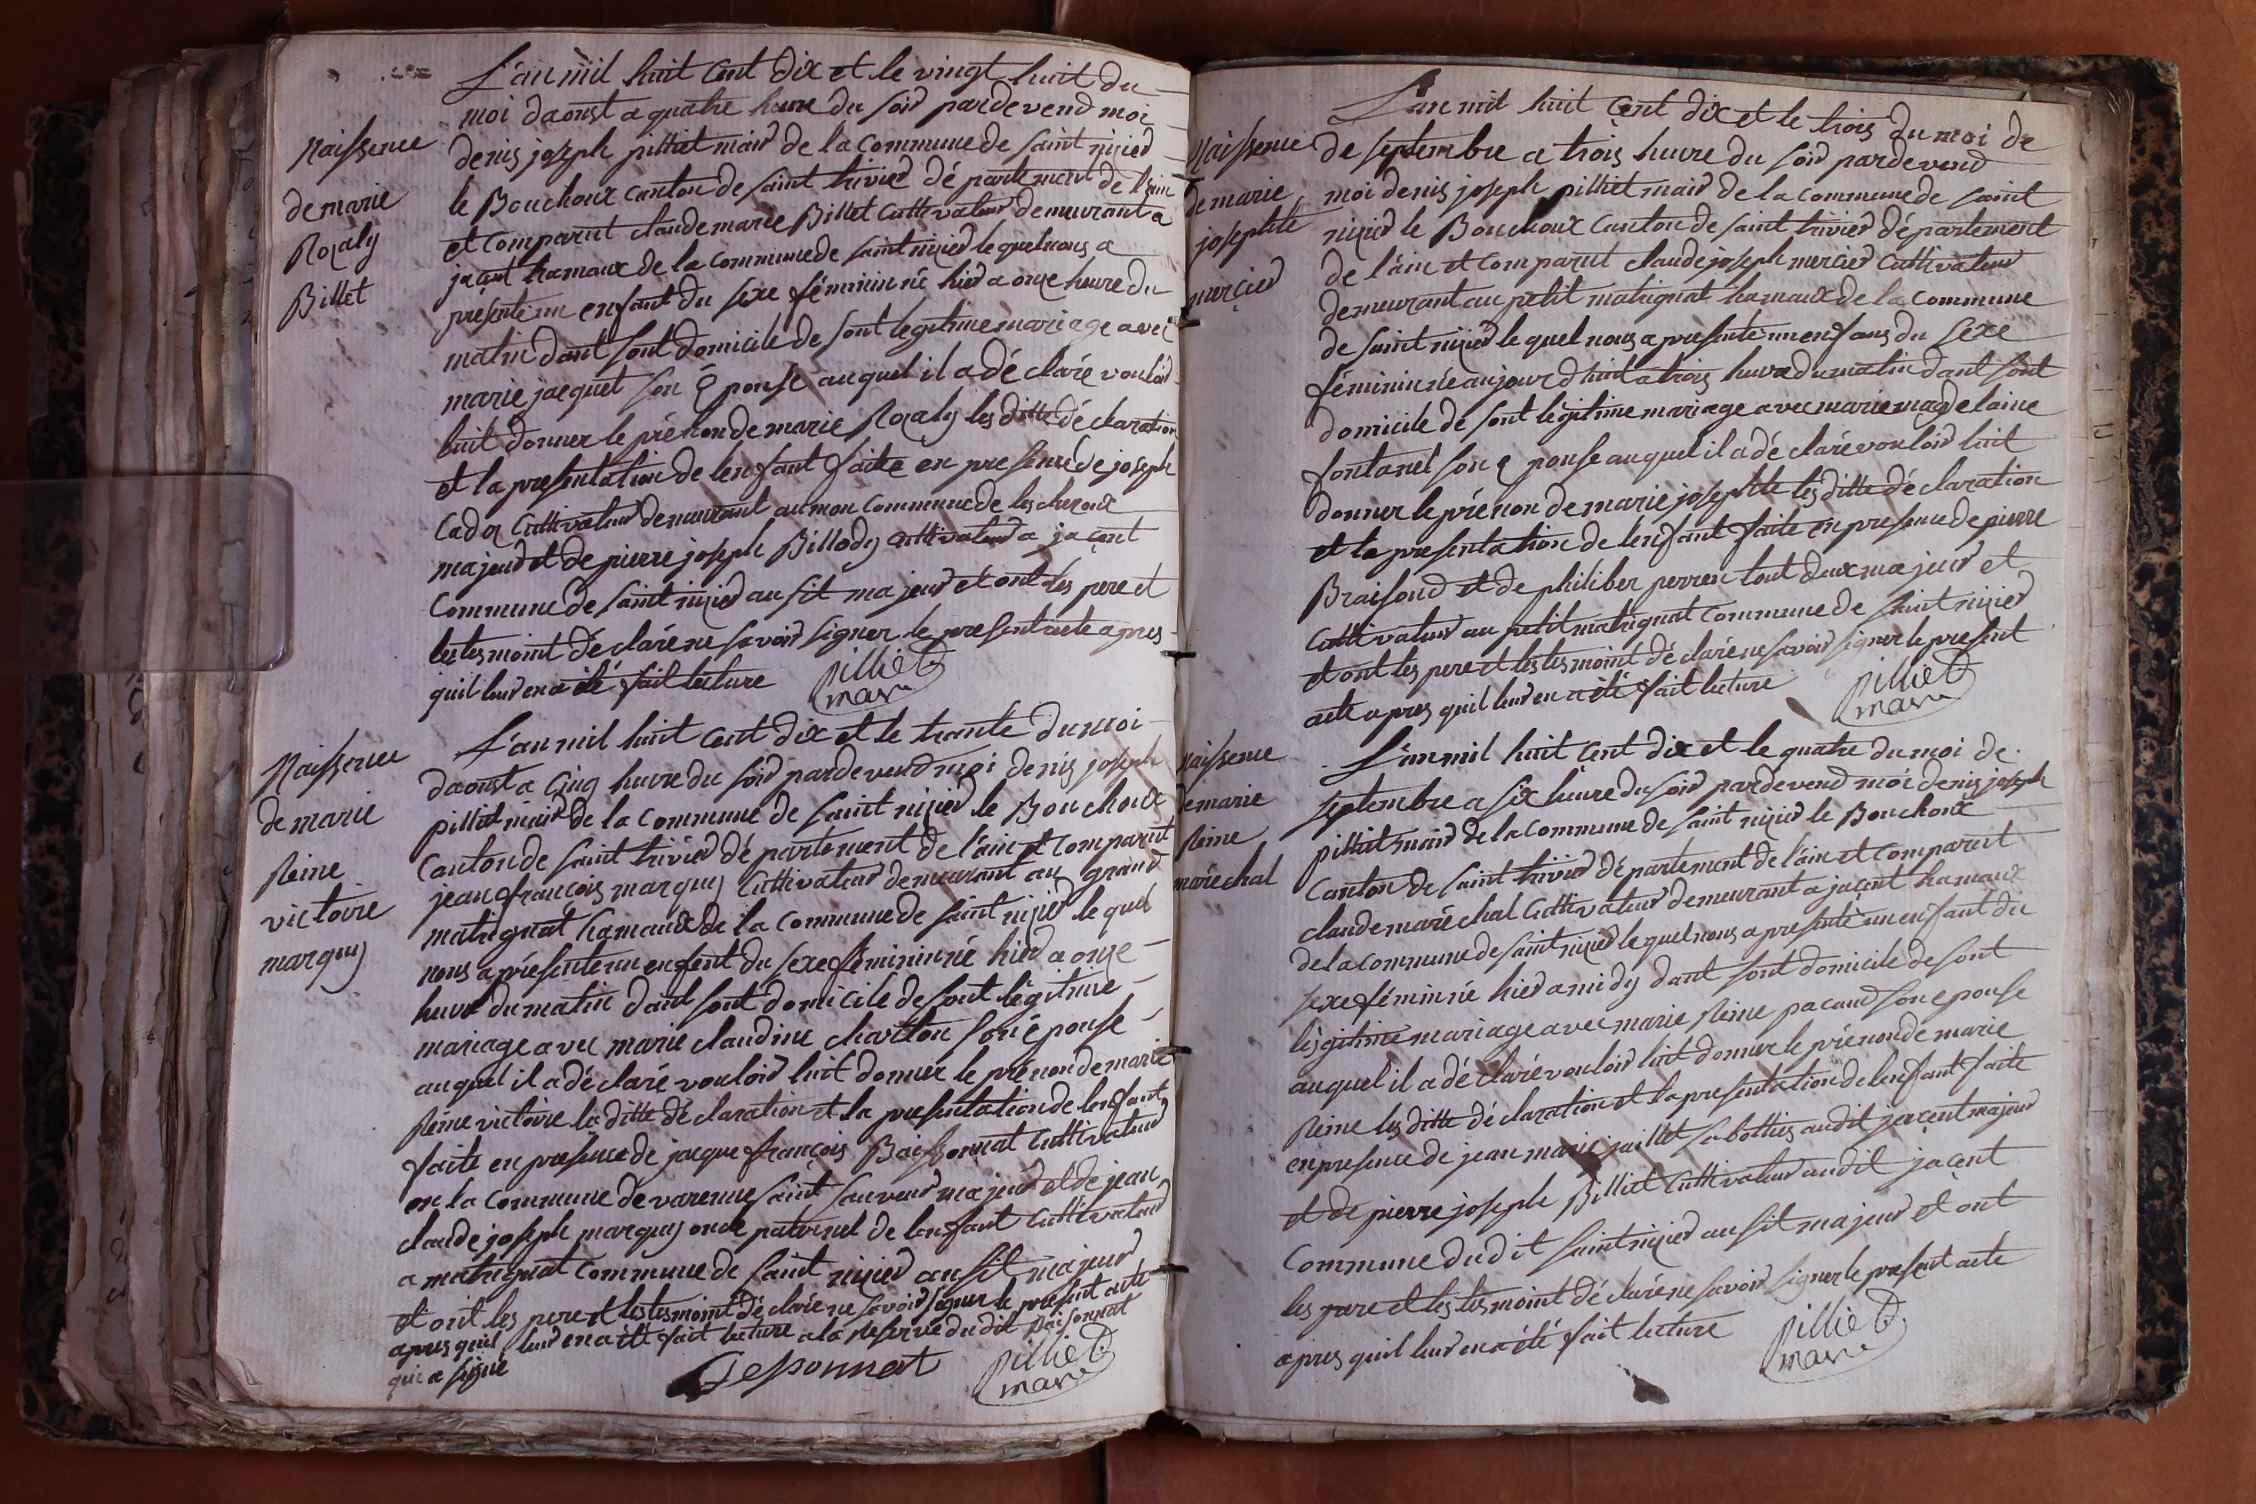 Naissence
de marie
Rozaly
Billet
L'an mil huit cent dix et le vingt huit du
moi daoust a quatre heure du soir pardevend moi
denis joseph pilliet mair de la commune de saint nizier
le Bouchoux canton de saint trivier département de l'ain
et comparut claude marie Billet cultivateur demeurant a
jacent hamaux de la commune de saint nizier lequel nous a
présenté un enfant du sexe féminin né hier a onze heure du
matin dant sont domicile de sont legitime mariage avec
marie jacquet son épouse auquel il a déclaré vouloir
luit donner le prénon de marie Rozaly les ditte déclaration
et la presentation de lenfant faite en presence de joseph
Cadoz cultivateur demeurant au mon commune de lescheroux
majeur et de pierre joseph Billody cultivateur a jacent
commune de saint nizier au sit majeur et ont les pere et
les tesmoint déclaré ne savoir signer le present acte apres
quil leur en a été fait lecture
pilliet
mair
Naissence
de marie
Reine
victoire
marquy
L'an mil huit cent dix et le trante du moi
daoust a cinq heure du soir pardevend moi denis joseph
pilliet mair de la commune de saint nizier le Bouchoux
canton de saint trivier département de l'ain et comparut
jean françois marquy cultivateur demeurant au grand
matrignat hamaux de la commune de saint nizier lequel
nous a présenté un enfent du sexe féminin né hier a onze
heure du matin dant sont domicile de sont légitime
mariage avec marie claudine charlton son épouse
auquel il a déclaré vouloir luit donner le prénon de marie
Reine victoire la ditte déclaration et la presentation de lenfant
faite en presence de jacque françois Baissonnat cultivateur
en la commune de varenne saint sauveur majeur et de jean
claude joseph marquy oncle paternel de lenfant cultivateur
a matrignat commune de saint nizier au sit majeur
et ont les pere et les tesmoint déclaré ne savoir signer le present acte
apres quil leur en a été fait lecture a la reserve du dit Baisonnat
qui a signé
pilliet
mair
Naissence
de marie
josephte
mercier
L'an mil huit cent dix et le trois du moi de
de septembre a trois heure du soir pardevend
moi denis joseph pilliet mair de la commune de saint
nizier le Bouchoux canton de saint trivier département
de l'ain et comparut claude joseph mercier cultivateur
demeurant au petit matrignat hamaux de la commune
de saint nizier lequel nous a presenté un enfans du sexe
féminin né aujourdhuit a trois heure du matin dant sont
domicile de sont légitime mariage avec marie magdelaine
fontanel son épouse auquel il a déclaré vouloir luit
donner le prénon de marie josephte les ditte déclaration
et la presentation de lenfant faite en presence de pierre
Braisoud et de philiber perren tout deux majeur et
cultivateur au petit matrignat commune de saint nizier
et ont les pere et les tesmoint déclaré ne savoir signer le present
acte apres quil leur en a été fait lecture
pilliet
mair
Naissence
de marie
Reine
maréchal
L'an mil huit cent dix et le quatre du moi de
septembre a six heure du soir pardevend moi denis joseph
pilliet mair de la commune de saint nizier le Bouchoux
canton de saint trivier département de l'ain et comparut
claude maréchal cultivateur demeurant a jacent hamaux
de la commune de saint nizier lequel nous a presenté un enfant du
sexe féminin né hier a midy dant sont domicile de sont
légitime mariage avec marie Reine pacaud son epouse
auquel il a déclaré vouloir luit donner le prénon de marie
Reine les ditte déclaration et la presentation de lenfant faite
en presence de jean marie jaillet sabottier au dit jacent majeur
et de pierre joseph Billiet cultivateur au dit jacent
commune du dit saint nizier au sit majeur et ont
les pere et les tesmoint déclaré ne savoir signer le present acte
apres quil leur en a été fait lecture
pilliet
mair